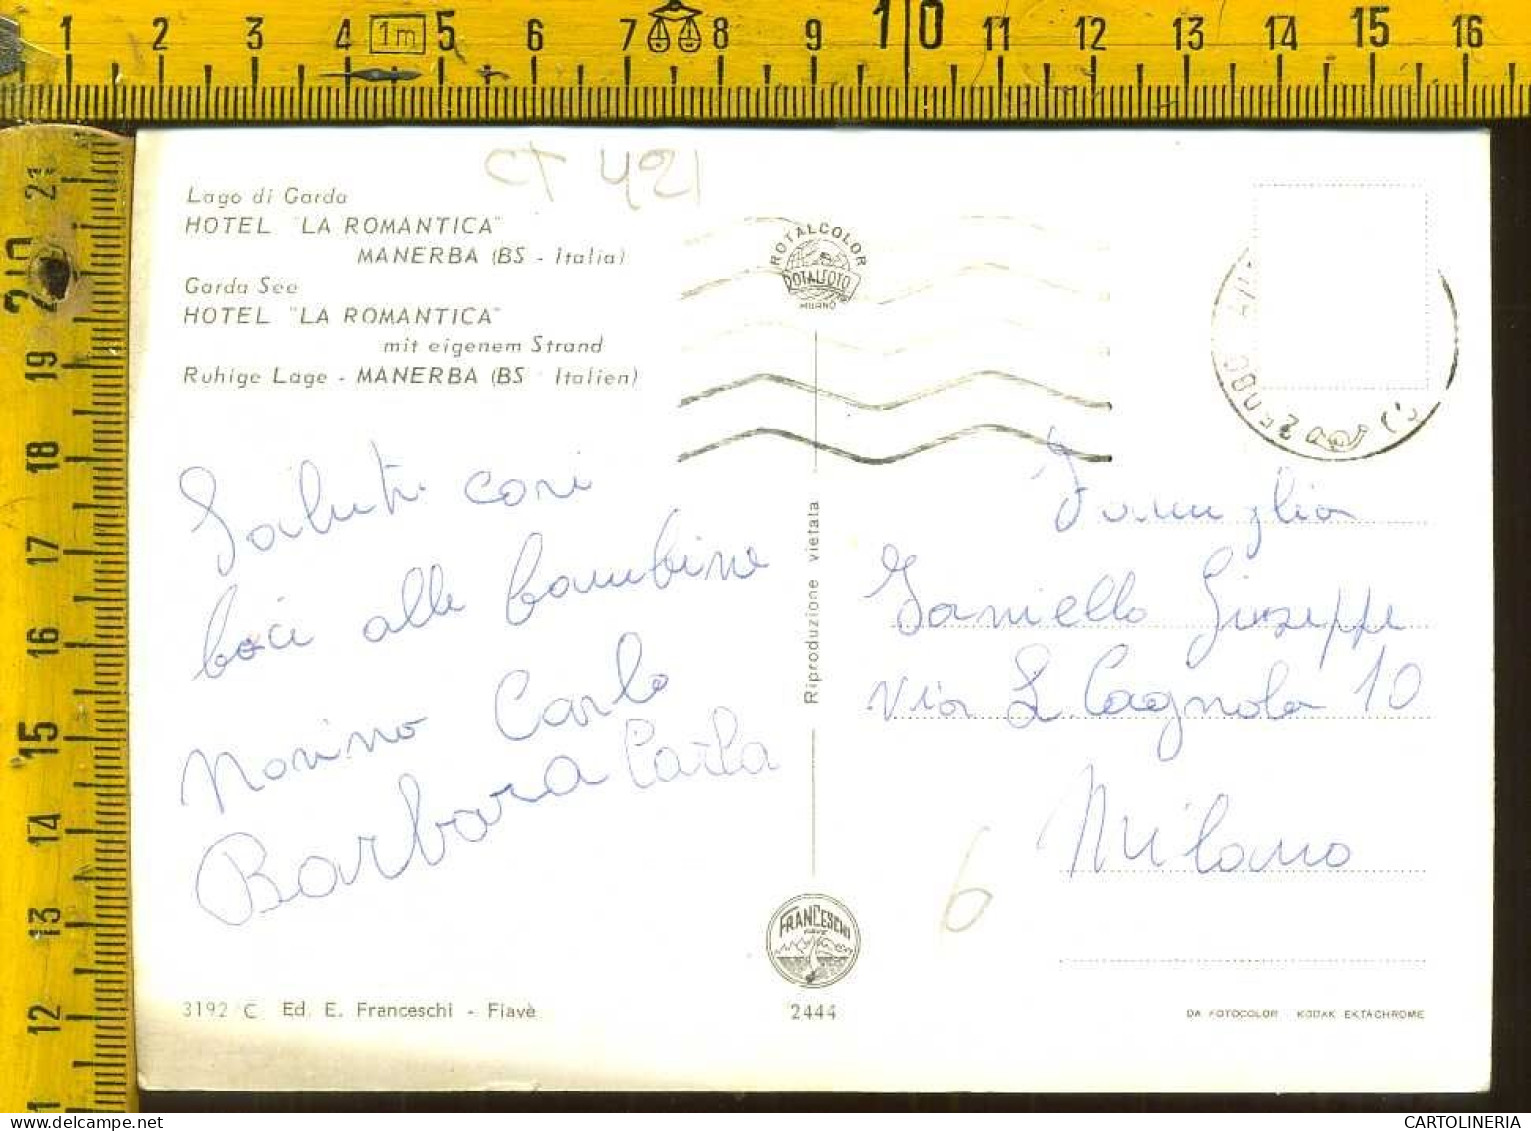 1 2 3 4 1m 5 6 7 8 9 10 11 12 13 14 15 16
21
20
19
18
17
16
15
14
13
12
CT 421
Lago di Garda
HOTEL "LA ROMANTICA"
MANERBA (BS - Italia)
Garda See
HOTEL "LA ROMANTICA"
mit eigenem Strand
Ruhige Lage - MANERBA (BS - Italien)
ROTALCOLOR
ROTALFOTO
MURANO
Saluti cari
baci alle bambine
Nonino Carlo
Barbara Carla
Riproduzione vietata
Famiglia
Ianiello Giuseppe
Via L. Cagnola 10
Milano
6
FRANCESCHI
FIAVÈ
3192 C Ed. E. Franceschi - Fiavè
2444
DA FOTOCOLOR KODAK EKTACHROME
CARTOLINERIA